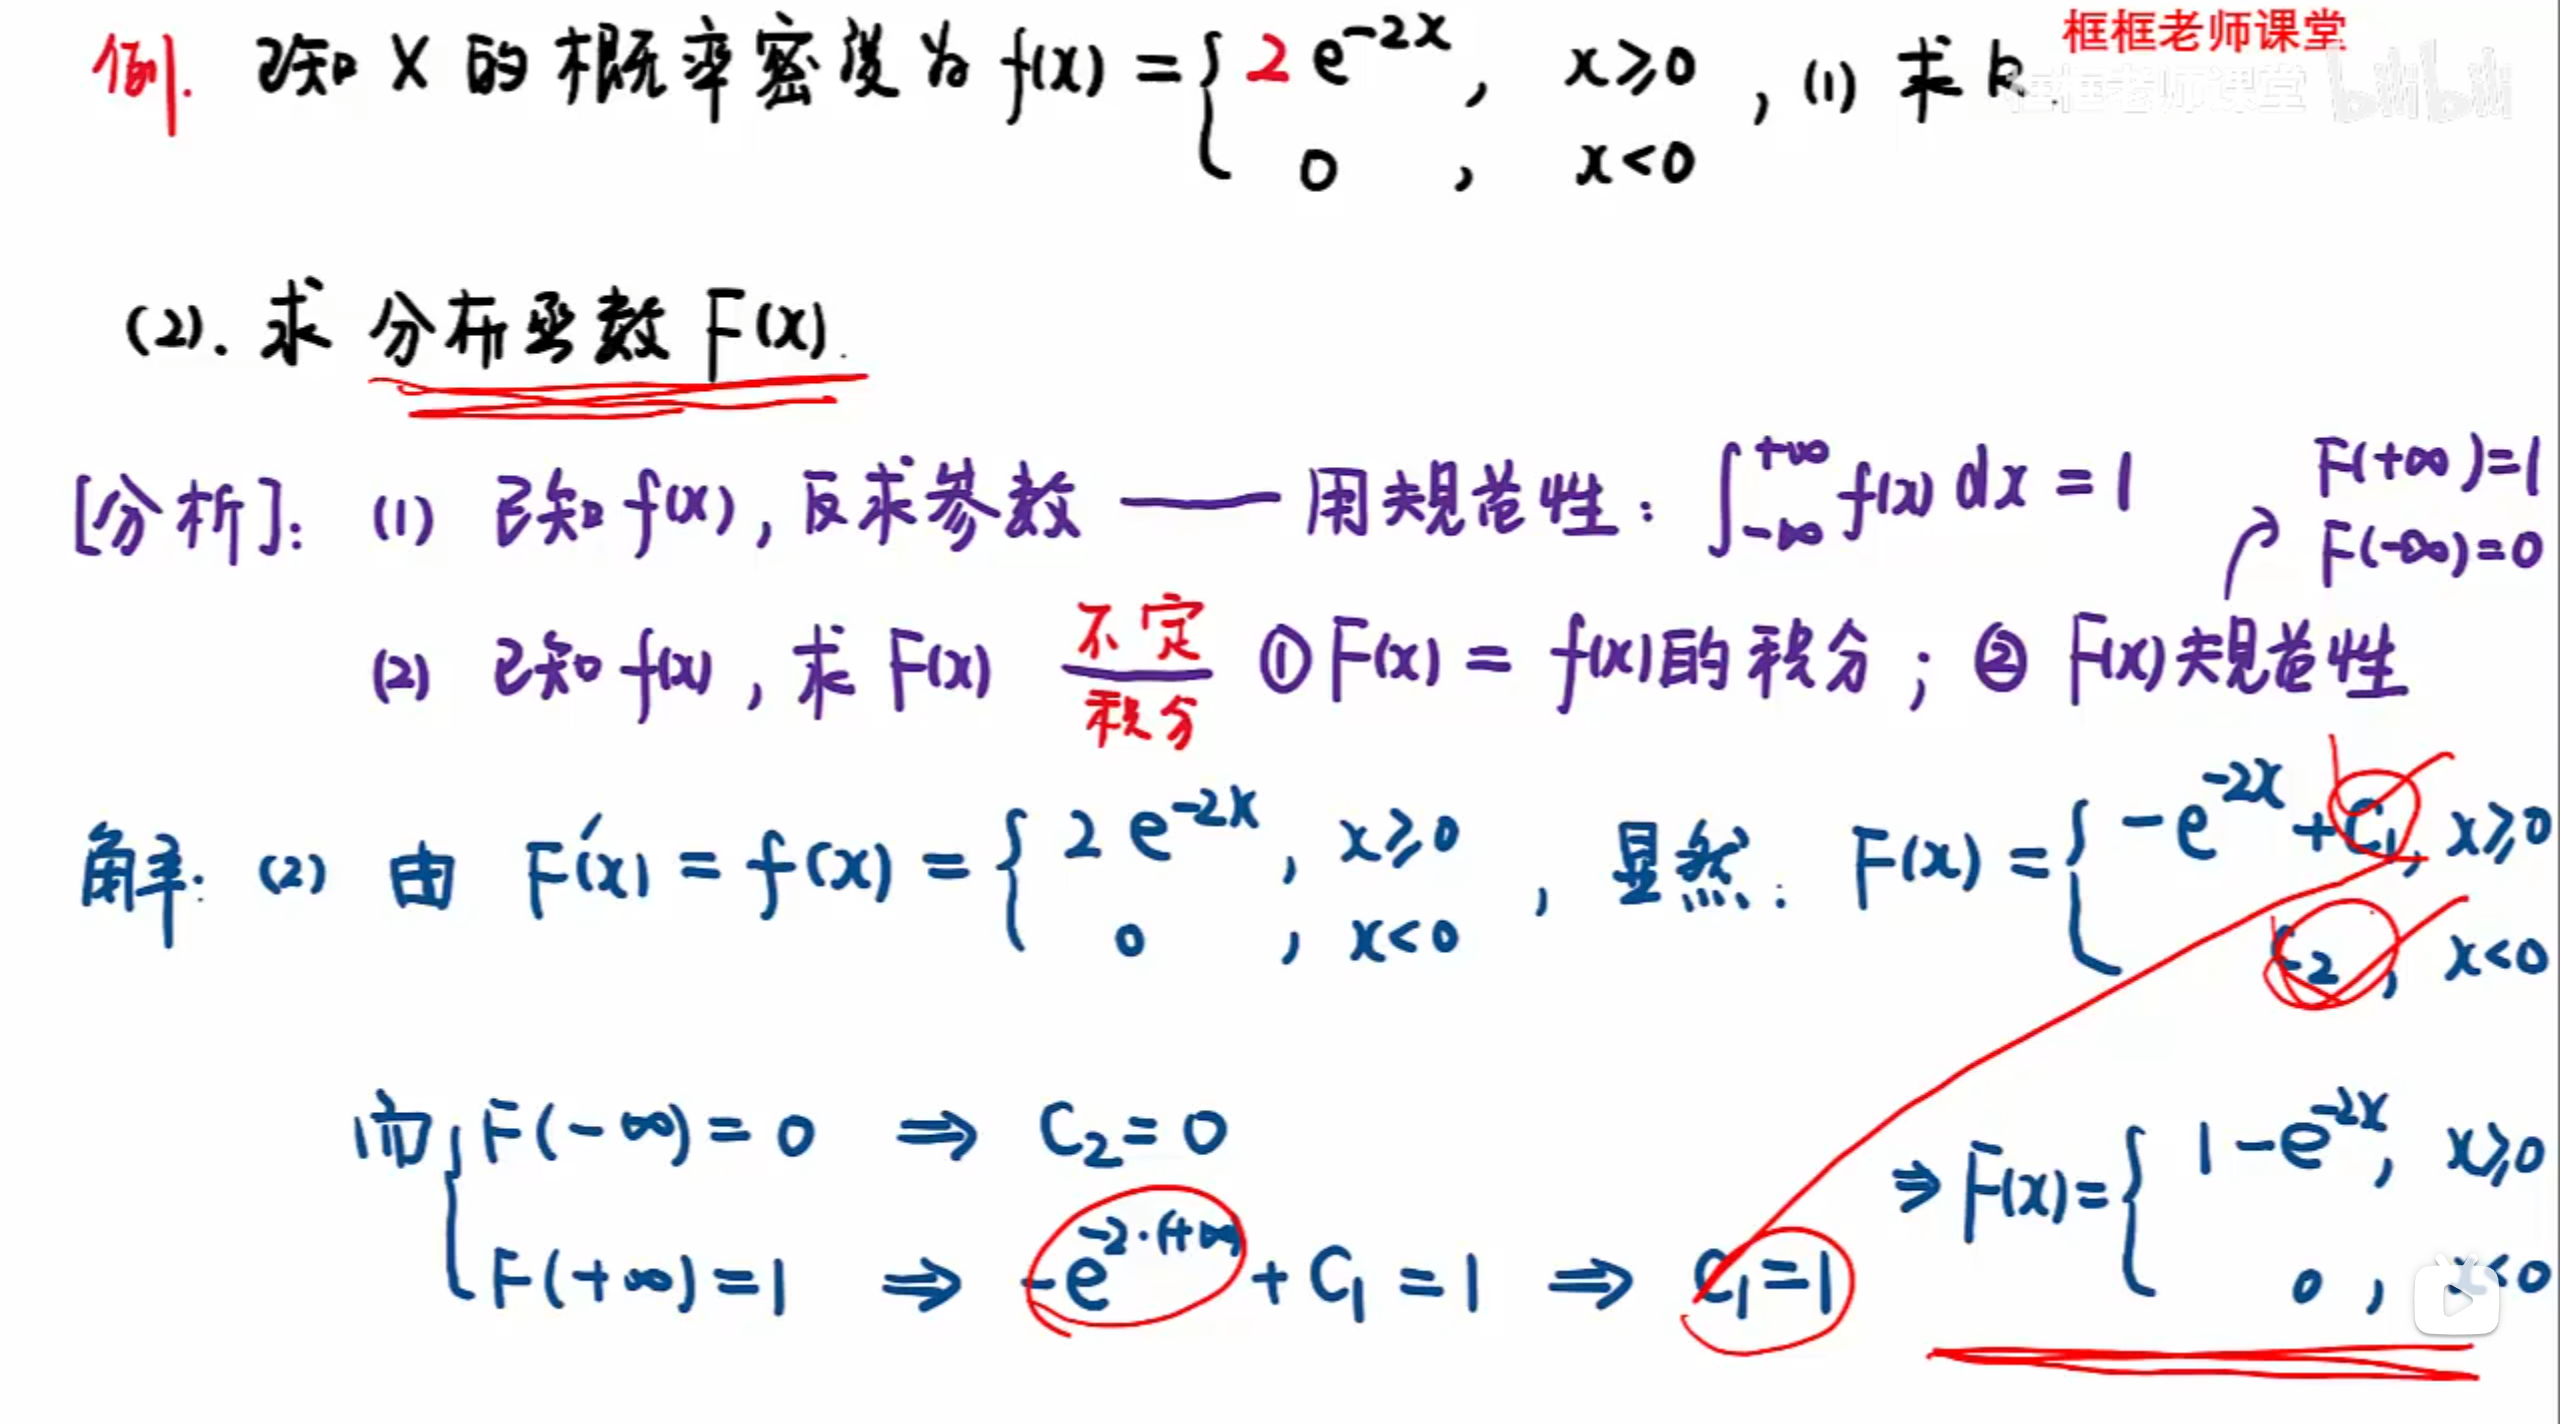 框框老师课堂
例. 已知 X 的概率密度为 f(x) = { 2 e^{-2x}, x≥0 , (1) 求 k.
0 , x<0
框框老师课堂 bilibili
(2). 求 分布函数 F(x).
[分析]: (1) 已知 f(x), 反求参数 —— 用规范性: ∫_{-∞}^{+∞} f(x) dx = 1
F(+∞)=1
F(-∞)=0
(2) 已知 f(x), 求 F(x) 不定积分 ① F(x) = f(x)的积分; ② F(x)规范性
解: (2) 由 F'(x) = f(x) = { 2 e^{-2x}, x≥0 , 显然: F(x) = { -e^{-2x}+C₁, x≥0
0 , x<0 C₂, x<0
而 { F(-∞) = 0 ⇒ C₂ = 0
F(+∞) = 1 ⇒ -e^{-2·(+∞)} + C₁ = 1 ⇒ C₁=1
⇒ F(x) = { 1-e^{-2x}, x≥0
0 , x<0